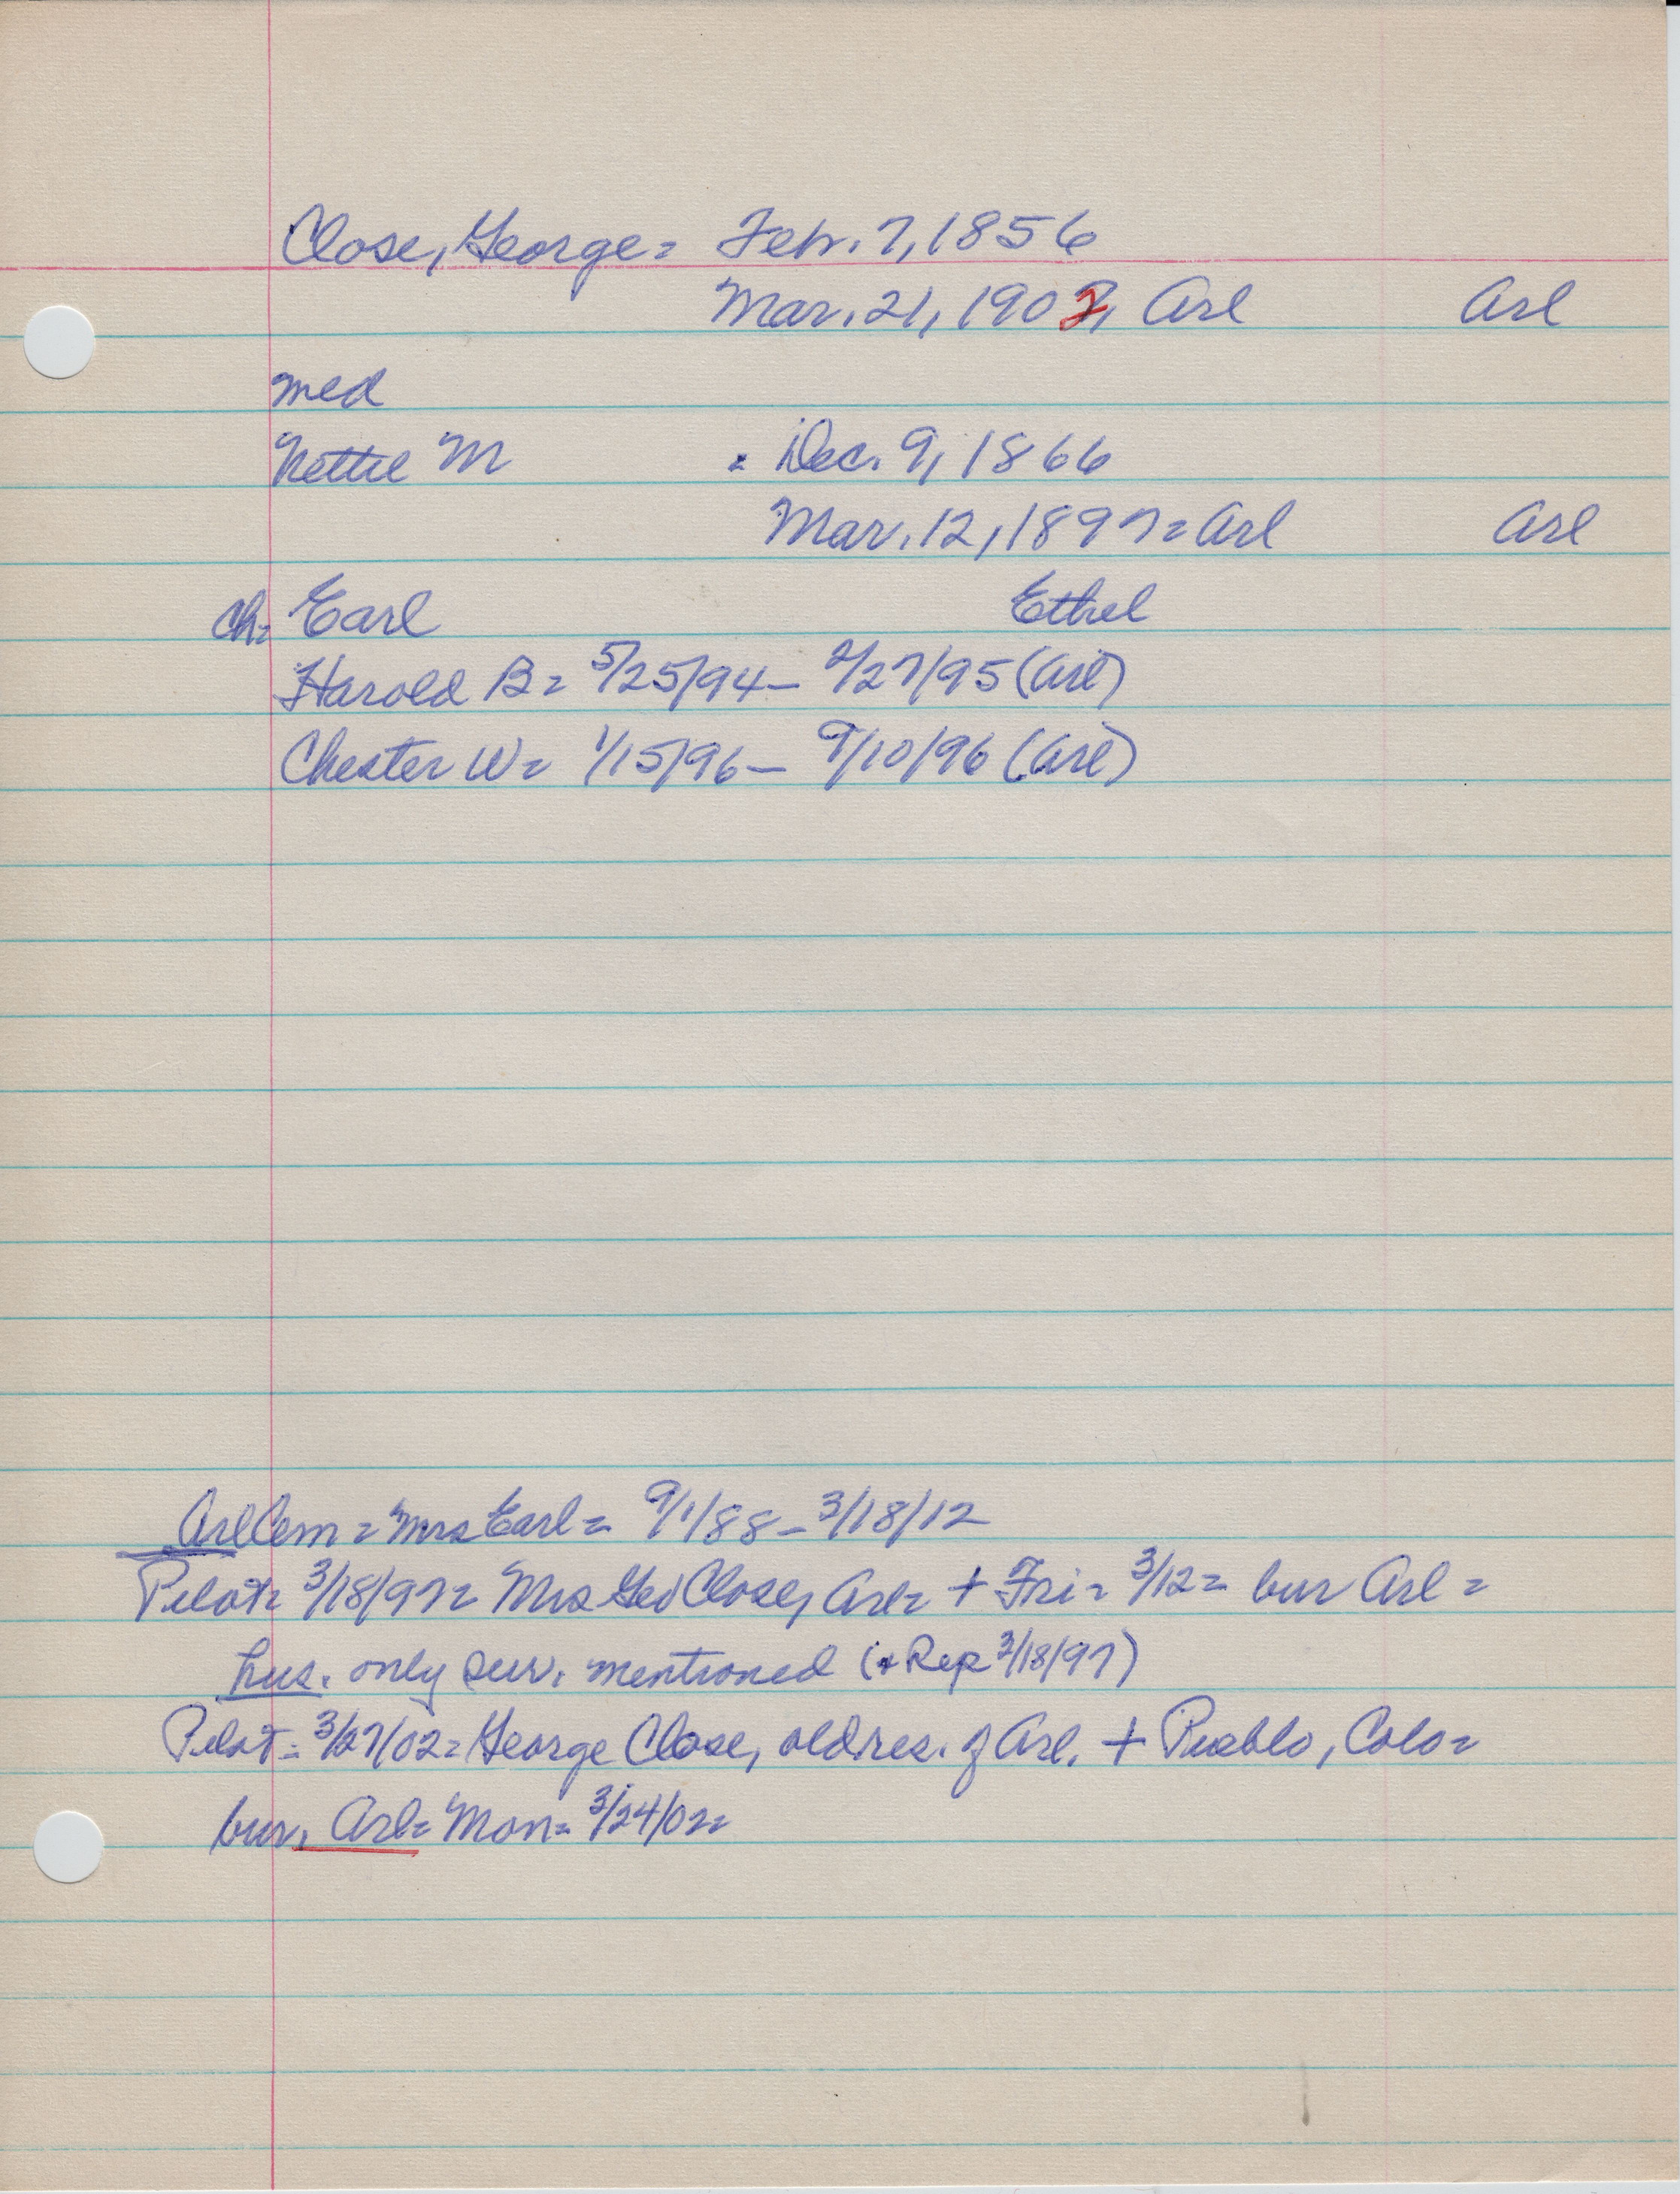 Close, George = Feb. 7, 1856
Mar. 21, 1902, Arl Arl
med
Nettie M = Dec. 9, 1866
Mar. 12, 1897 = Arl Arl
Ch = Earl Ethel
Harold B = 5/25/94 – /27/95 (Arl)
Chester W = 1/15/96 – 9/10/96 (Arl)
Arl Cem = Mrs Earl = 9/1/88 – 3/18/12
Pilot = 3/18/97 = Mrs Geo Close, Arl = + Fri = 3/12 = bur Arl =
hus. only surv. mentioned (+ Rep 3/18/97)
Pilot = 3/27/02 = George Close, old res. of Arl. + Pueblo, Colo =
bur. Arl = Mon = 3/24/02 =